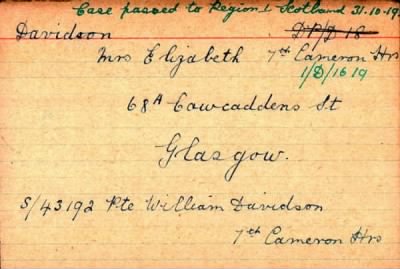 Case passed to Region 1 Scotland 31.10.19
Davidson DP/D 18
Mrs Elizabeth 7th Cameron Hrs
1/D/1619
68A Cowcaddens St
Glasgow.
S/43192 Pte William Davidson
7th Cameron Hrs